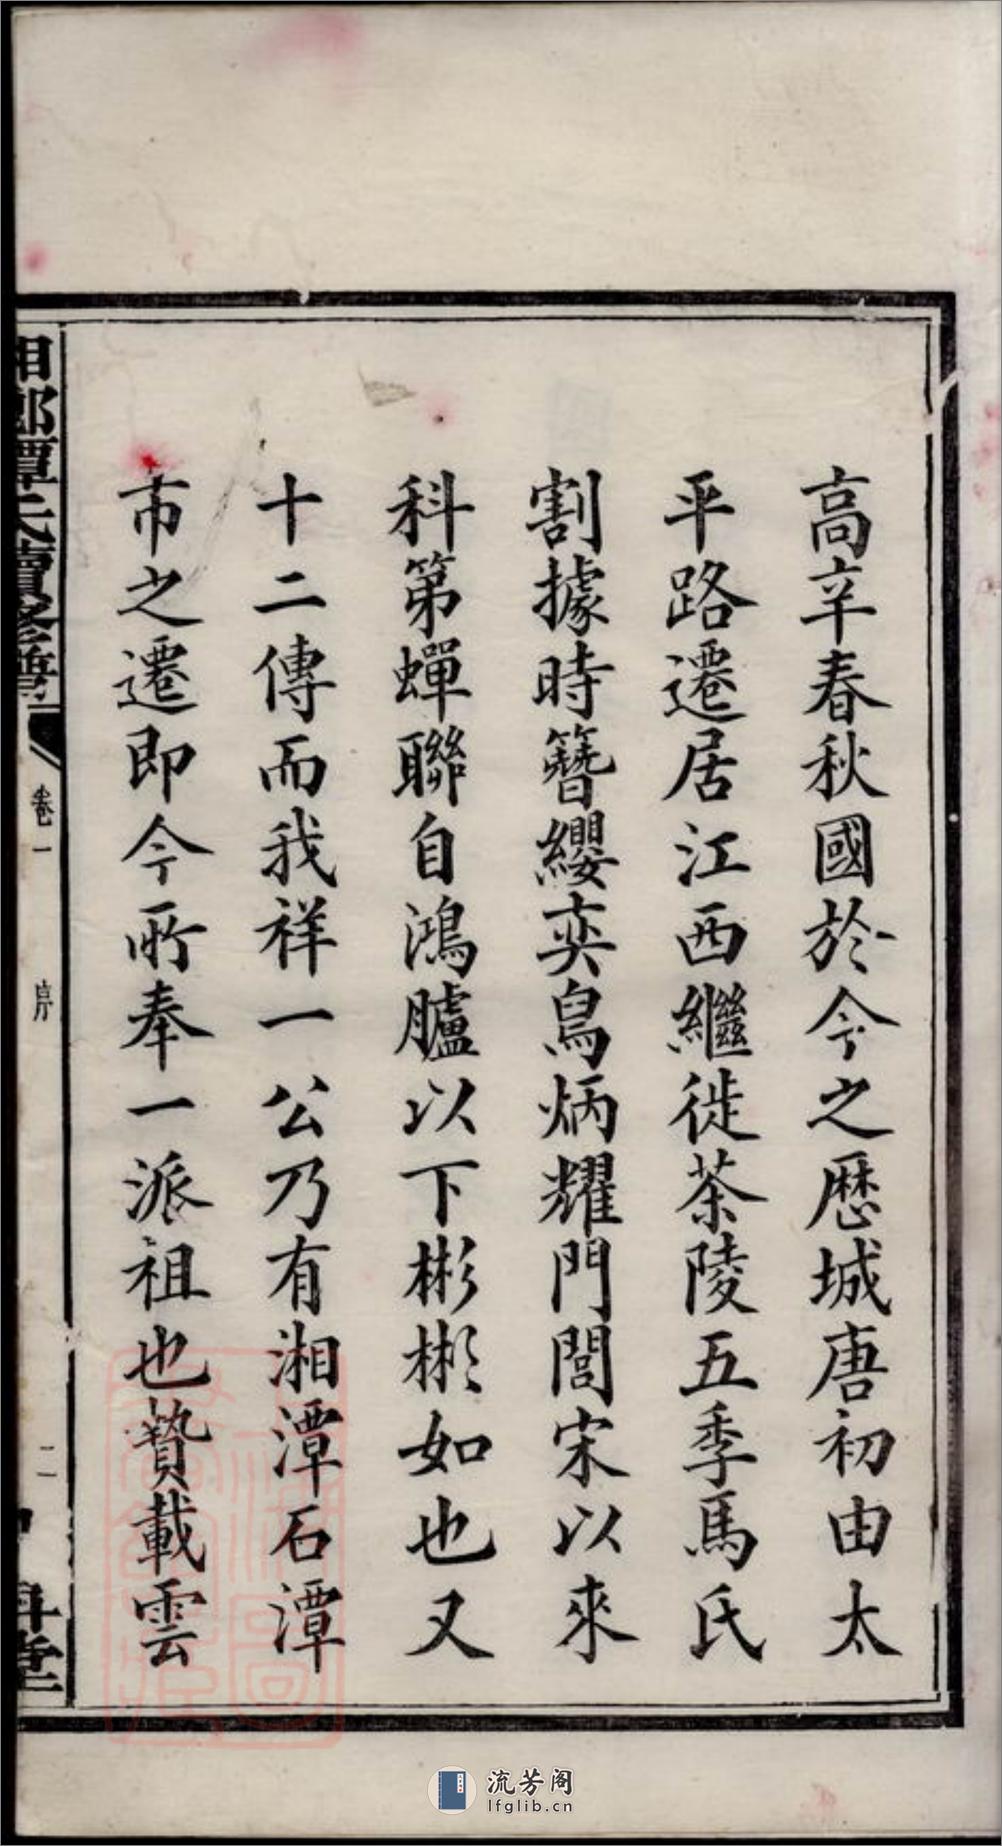 高辛春秋國於今之歷城唐初由太
平路遷居江西繼徙茶陵五季馬氏
割據時簪纓奕舄炳耀門閭宋以來
科第蟬聯自鴻臚以下彬彬如也又
十二傳而我祥一公乃有湘潭石潭
市之遷即今所奉一派祖也贊載雲
譚氏續修譜
卷一
序
二
堂
流芳阁
lfglib.cn